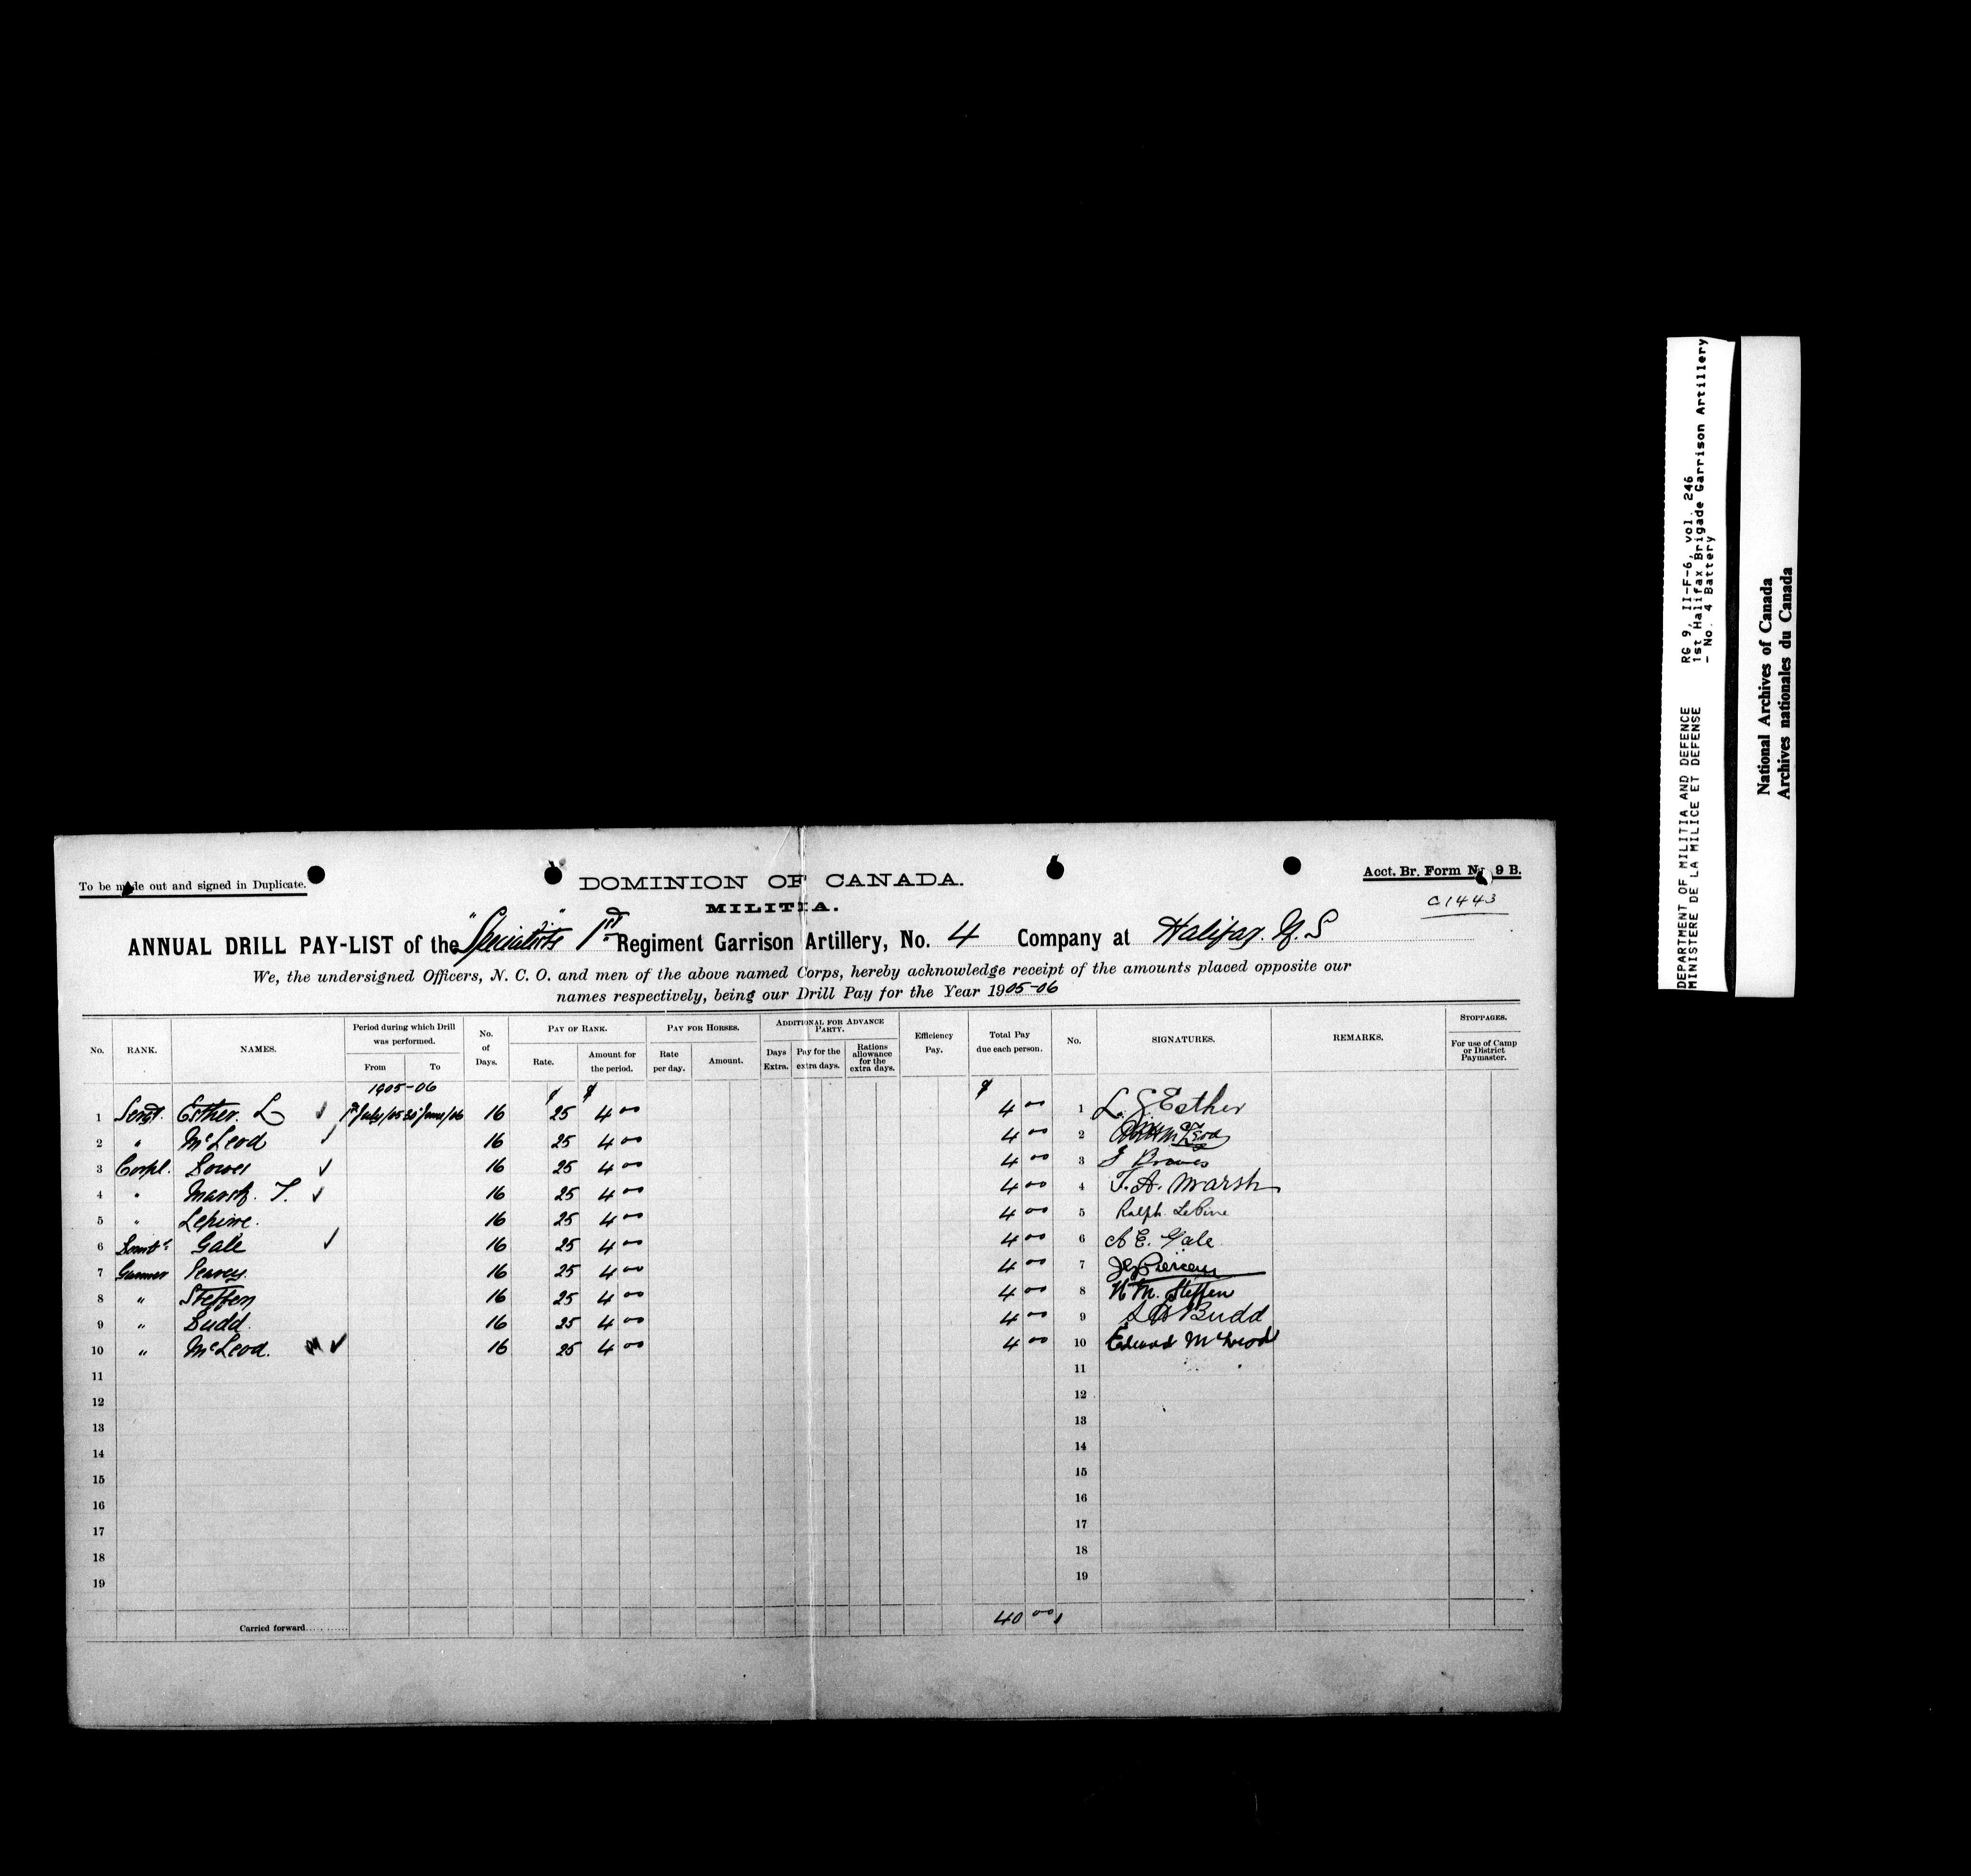 To be made out and signed in Duplicate.
DOMINION OF CANADA.
MILITIA.
Acct. Br. Form No. 9 B.
C1443
ANNUAL DRILL PAY-LIST of the "Specialists" 1st Regiment Garrison Artillery, No. 4 Company at Halifax. N.S
We, the undersigned Officers, N. C. O. and men of the above named Corps, hereby acknowledge receipt of the amounts placed opposite our
names respectively, being our Drill Pay for the Year 1905-06
No. RANK. NAMES. Period during which Drill was performed. From To No. of Days. PAY OF RANK. Rate. Amount for the period. PAY FOR HORSES. Rate per day. Amount. ADDITIONAL FOR ADVANCE PARTY. Days Extra. Pay for the extra days. Rations allowance for the extra days. Efficiency Pay. Total Pay due each person. No. SIGNATURES. REMARKS. STOPPAGES. For use of Camp or District Paymaster.
1905-06 $ $ $
1 Sergt. Esther. L ✓ 1st July/05 30 June/06 16 25 4 00 4 00 1 L. G Esther
2 " McLeod ✓ 16 25 4 00 4 00 2
3 Corpl. ✓ 16 25 4 00 4 00 3
4 " Marsh. T. ✓ 16 25 4 00 4 00 4 T. A. Marsh
5 " Lepine. 16 25 4 00 4 00 5 Ralph LePine
6 Bombr Gale ✓ 16 25 4 00 4 00 6 A E. Gale
7 Gunner 16 25 4 00 4 00 7
8 " Steffen 16 25 4 00 4 00 8 H M. Steffen
9 " Budd. 16 25 4 00 4 00 9 Budd
10 " McLeod. ✓ 16 25 4 00 4 00 10 Edward McLeod
11 11
12 12
13 13
14 14
15 15
16 16
17 17
18 18
19 19
Carried forward........... 40 00
DEPARTMENT OF MILITIA AND DEFENCE
MINISTERE DE LA MILICE ET DEFENSE
RG 9, II-F-6, vol. 246
1st Halifax Brigade Garrison Artillery
- No. 4 Battery
National Archives of Canada
Archives nationales du Canada